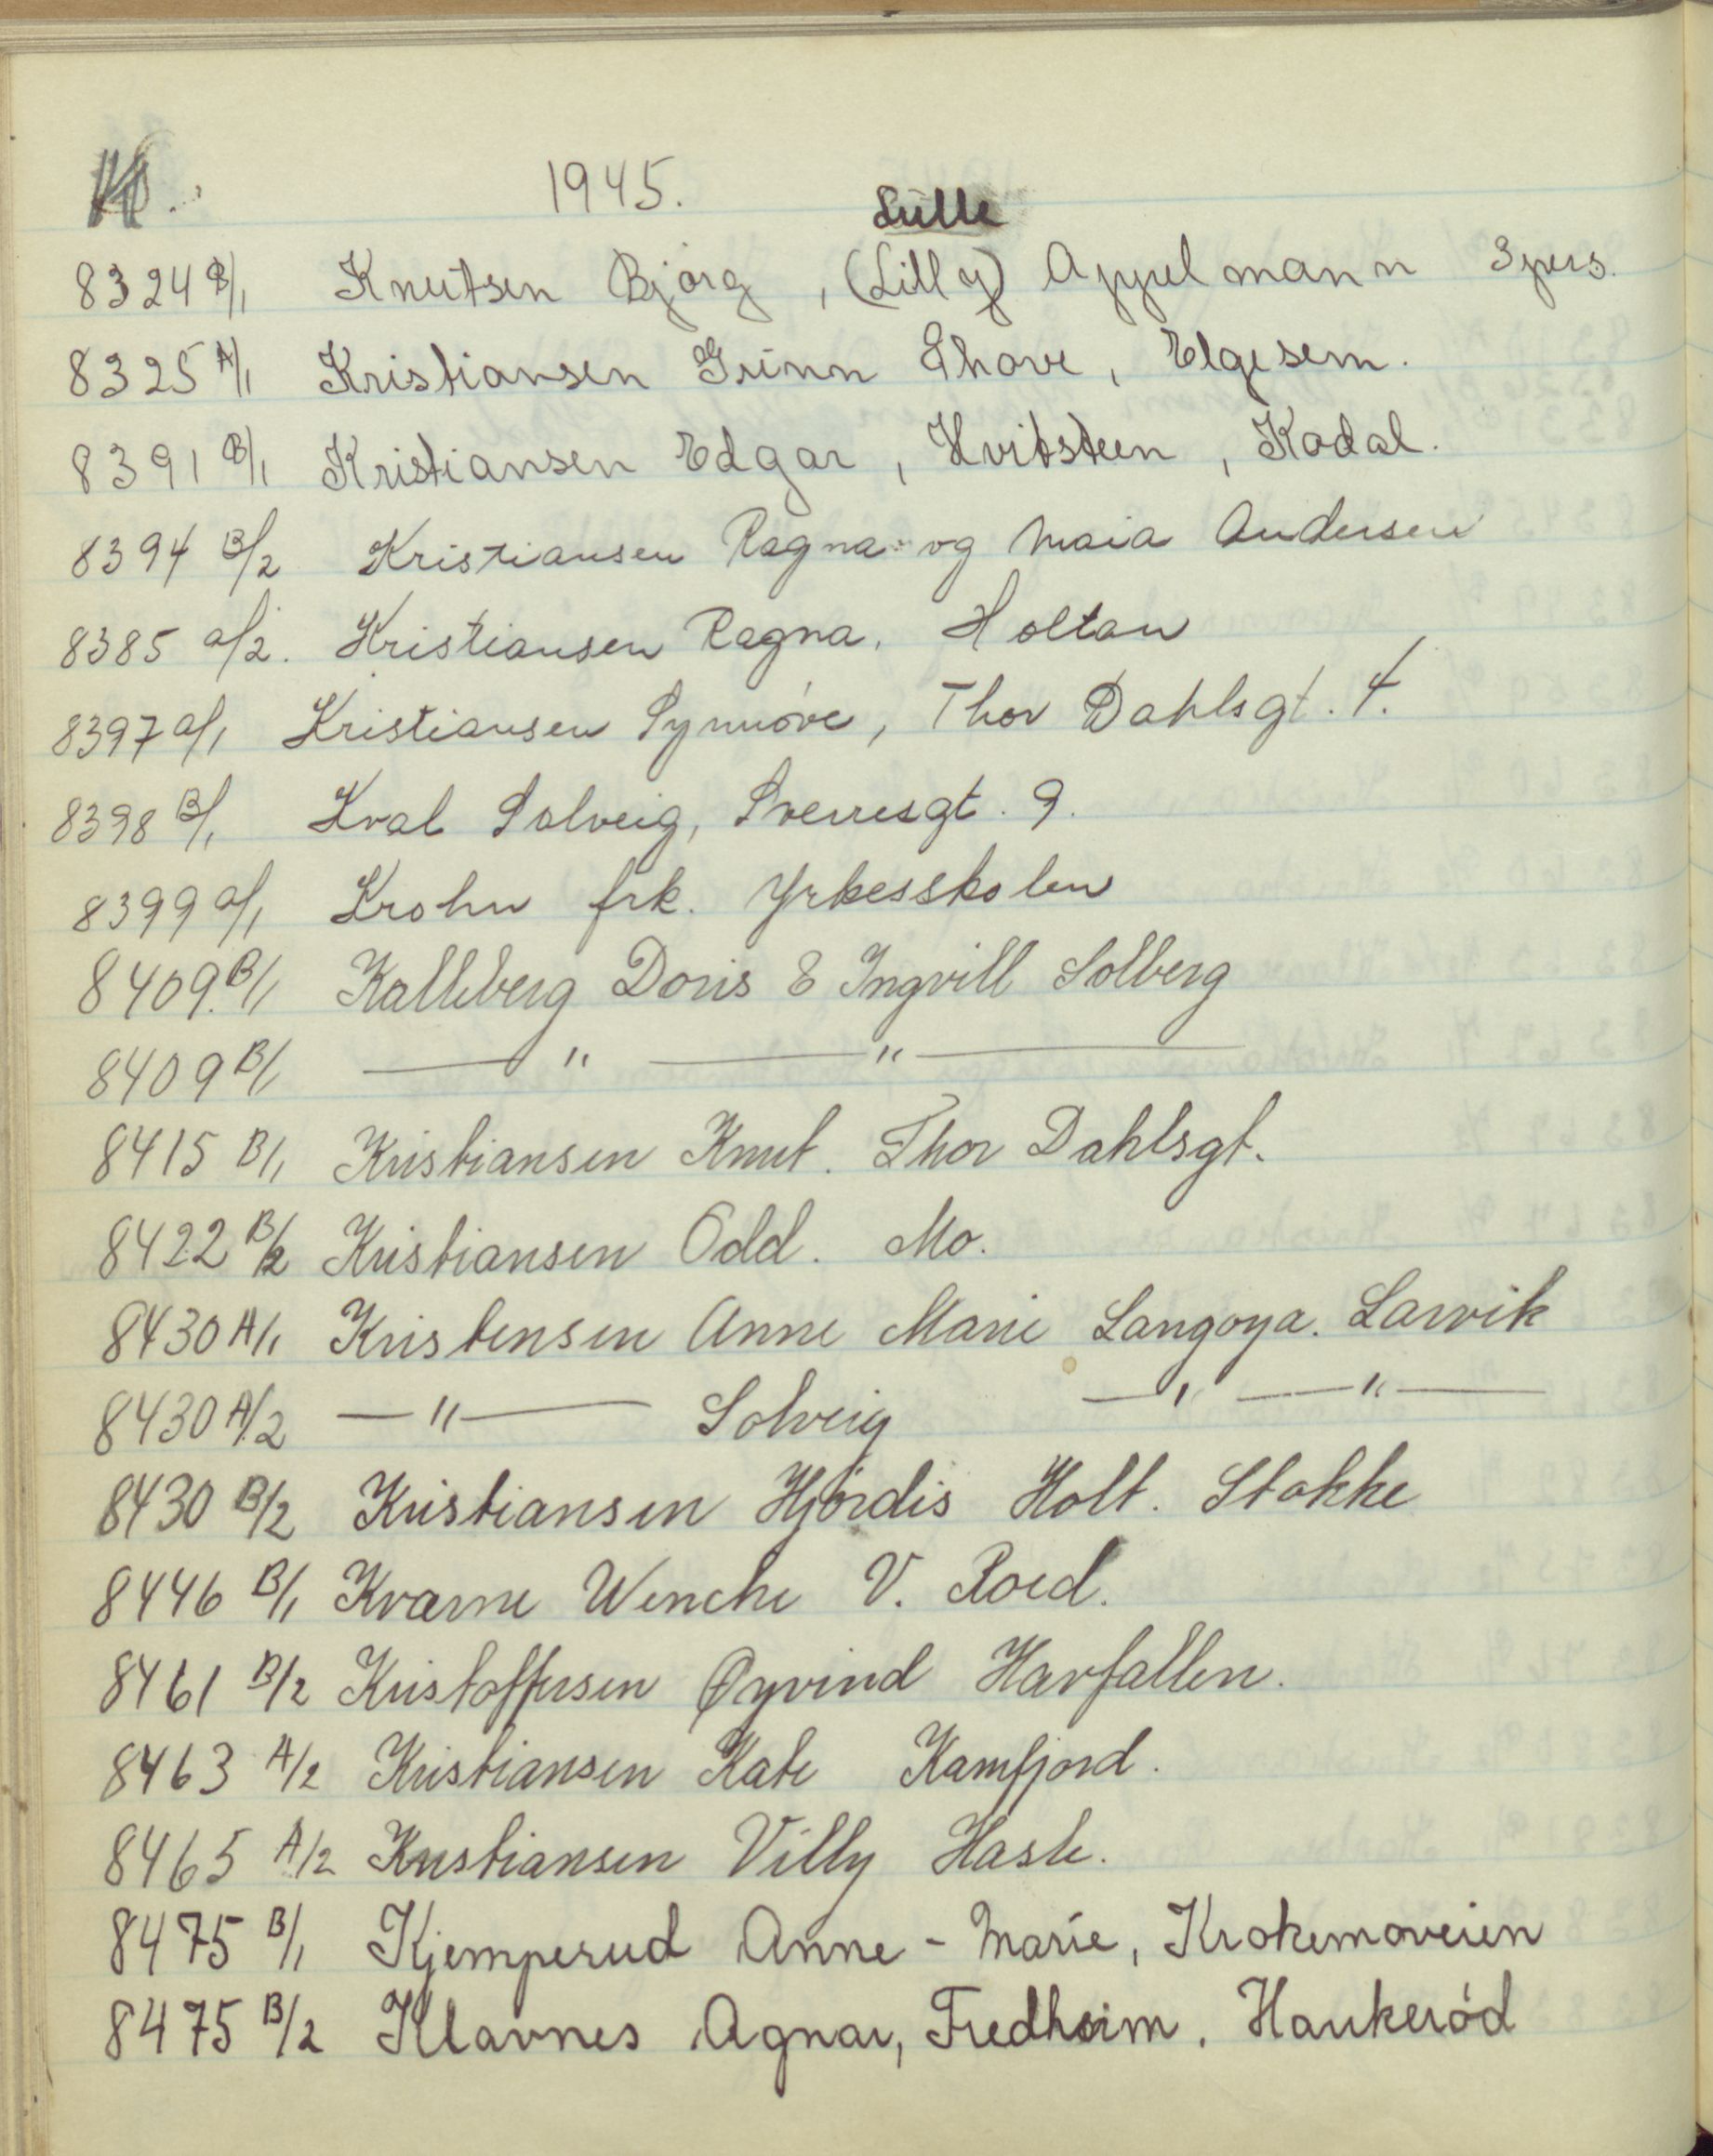 K.
1945.
Lille
8324 B/1 Knutsen Bjørg, (Lilly) Appelmann 3 pers.
8325 A/1 Kristiansen Grinn Thove, Elgesem.
8391 B/1 Kristiansen Edgar, Hvitsteen, Kodal.
8394 B/2 Kristiansen Ragna og Maia Andersen
8385 a/2. Kristiansen Ragna, Holtan
8397 a/1 Kristiansen Synnøve, Thor Dahlsgt. 4.
8398 B/1 Kval Solveig, Sverresgt. 9.
8399 a/1 Krohn frk. Yrkesskolen
8409. B/1 Kalleberg Doris & Ingvill Solberg
8409 B/1 — " — " —
8415 B/1 Kristiansen Knut. Thor Dahlsgt.
8422 B/2 Kristiansen Odd. Mo.
8430 A/1 Kristensen Anne Marie Langøya. Larvik
8430 A/2 — " — Solveig — " — " —
8430 B/2 Kristiansen Hjørdis Holt. Stokke
8446 B/1 Kværne Wenche V. Roed.
8461 B/2 Kristoffersen Øyvind Havfallen.
8463 A/2 Kristiansen Kate Kamfjord.
8465 A/2 Kristiansen Villy Hasle.
8475 B/1 Kjemperud Anne-Marie, Krokemoveien
8475 B/2 Klavnes Agnar, Fredheim, Haukerød